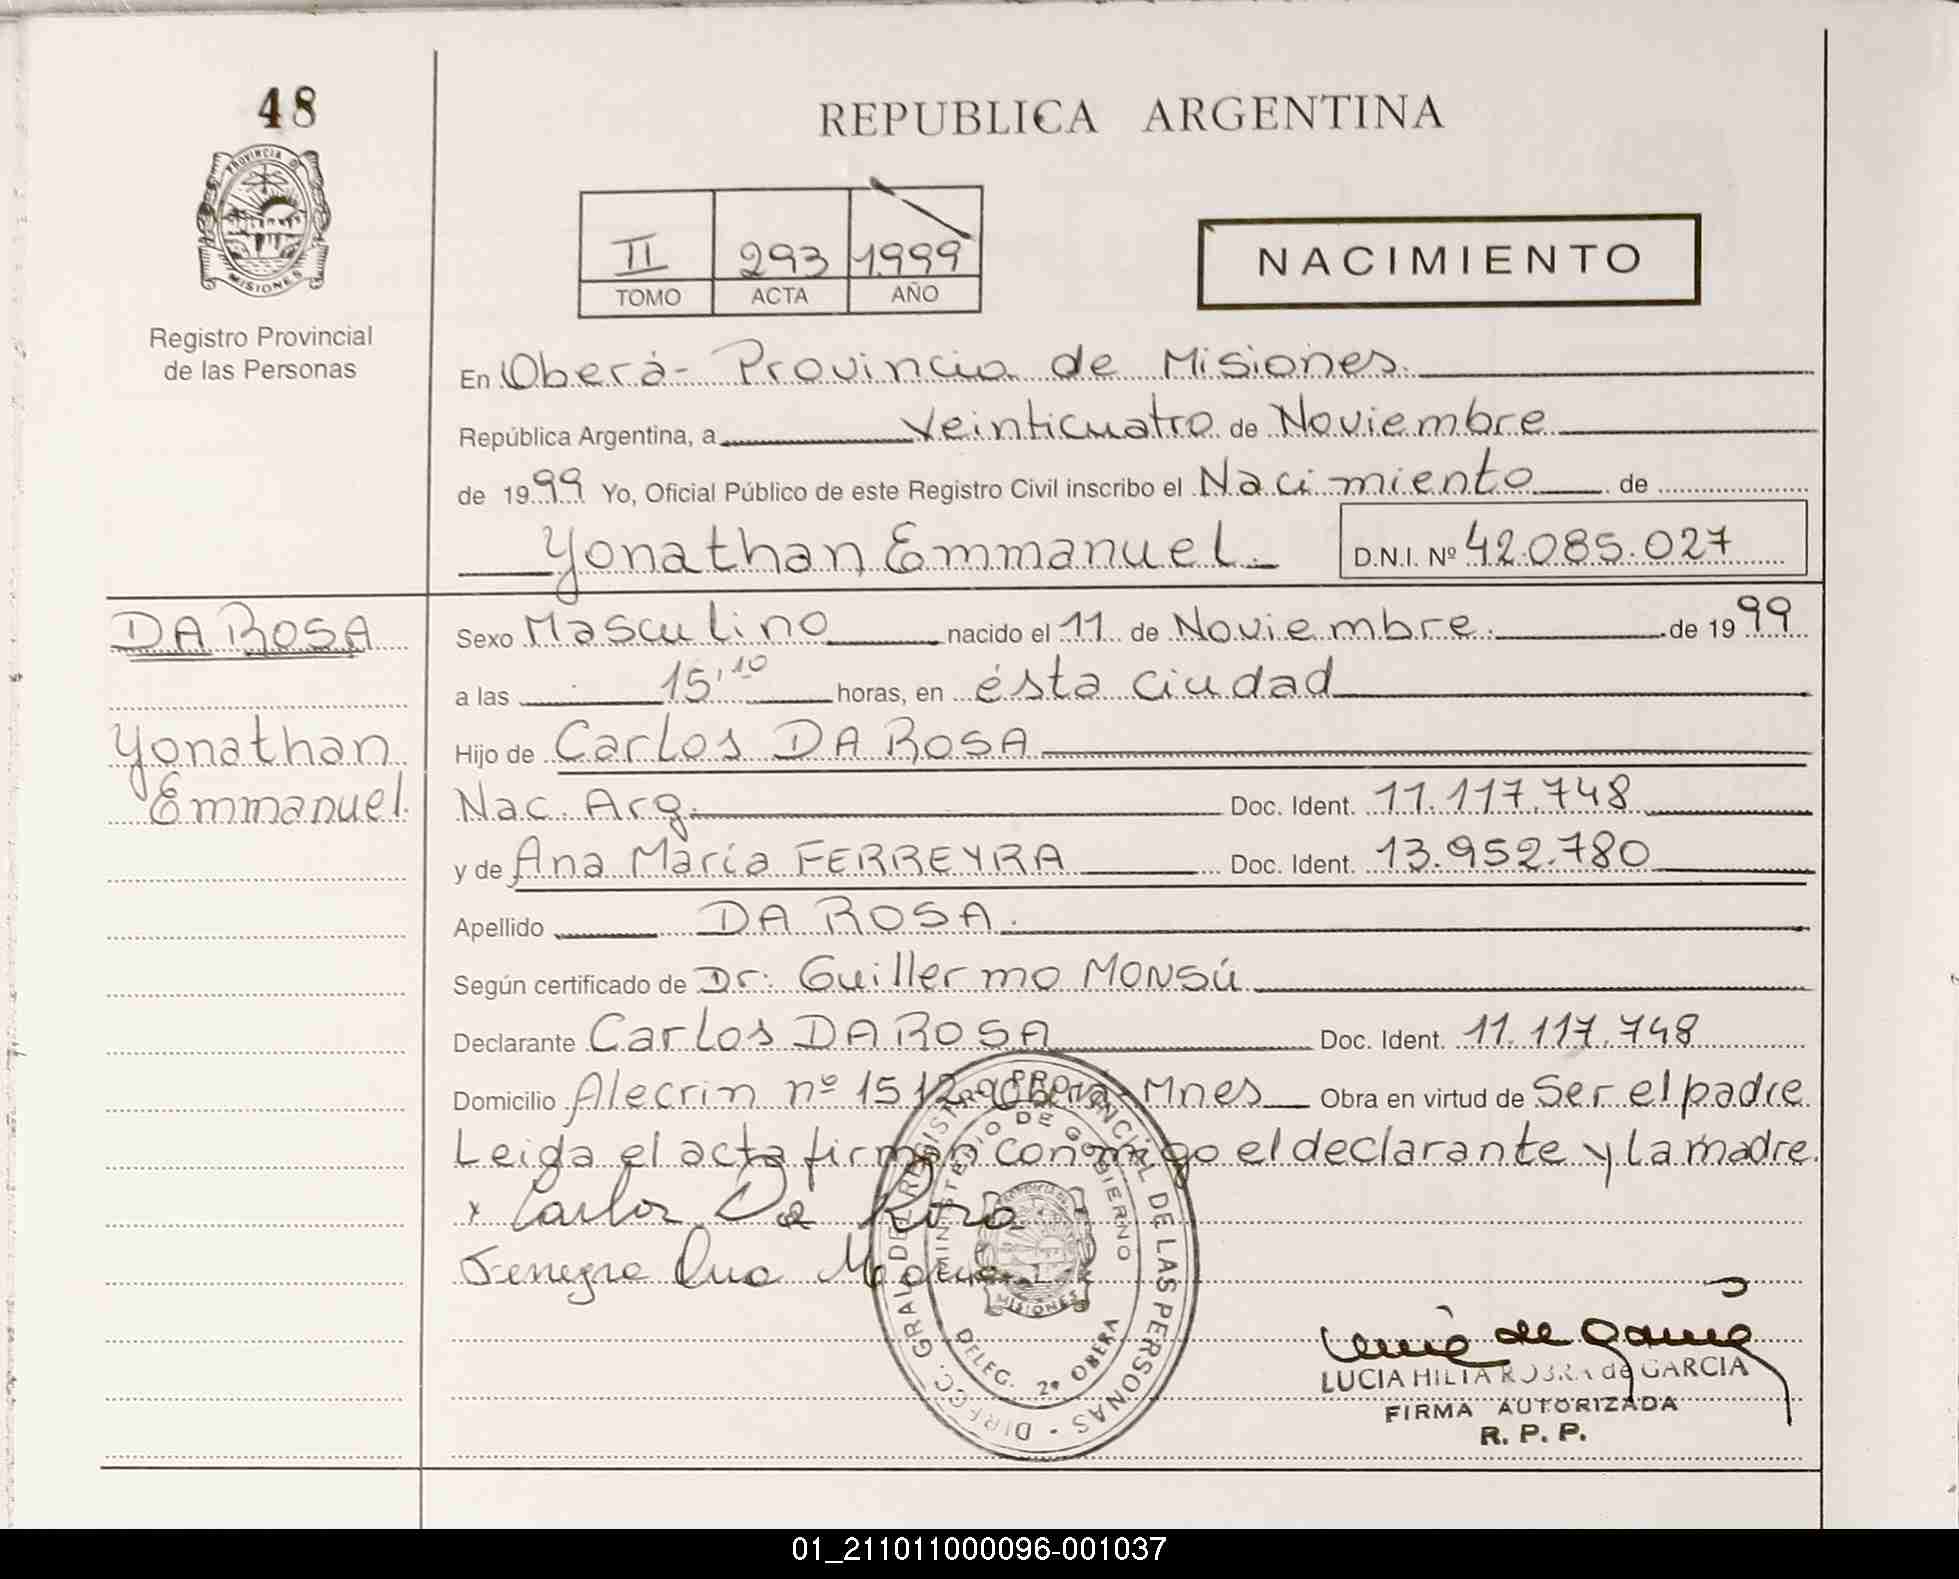 48
PROVINCIA D
MISIONES
Registro Provincial
de las Personas
REPUBLICA ARGENTINA
II 293 1999
TOMO ACTA AÑO
NACIMIENTO
En Oberá - Provincia de Misiones.
República Argentina, a Veinticuatro de Noviembre
de 1999 Yo, Oficial Público de este Registro Civil inscribo el Nacimiento de
Yonathan Emmanuel. D.N.I. Nº 42.085.027
DA ROSA
Yonathan
Emmanuel.
Sexo Masculino nacido el 11 de Noviembre. de 1999
a las 15,10 horas, en ésta ciudad
Hijo de Carlos DA ROSA
Nac. Arg. Doc. Ident. 11.117.748
y de Ana María FERREYRA Doc. Ident. 13.952.780
Apellido DA ROSA.
Según certificado de Dr. Guillermo MONSÚ
Declarante Carlos DA ROSA Doc. Ident. 11.117.748
Domicilio Alecrin nº 1512-Oberá-Mnes Obra en virtud de Ser el padre
Leida el acta firman conmigo el declarante y la madre.
x Carlos Da Rosa
Ana Maria
DIRECC. GRAL DEL REGISTRO PROVINCIAL DE LAS PERSONAS
MINISTERIO DE GOBIERNO
MISIONES
DELEG. 2ª OBERA
LUCIA HILIA de GARCIA
FIRMA AUTORIZADA
R. P. P.
01_211011000096-001037